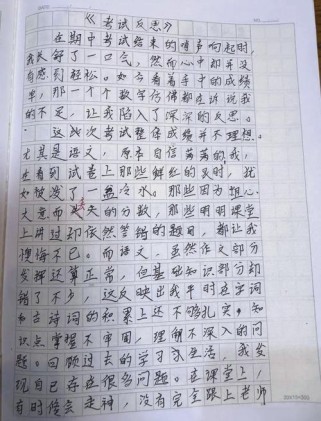 《考试反思》
在期中考试结束的铃声响起时，
我长舒了一口气，然而心中却并没
有感到轻松。如今看着手中的成绩
单，那一个个数字仿佛都在诉说我
的不足，让我陷入了深深的反思。
这次考试整体成绩并不理想。
尤其是语文，原本自信满满的我，
在看到试卷上那些鲜红的叉时，犹
如被泼了一盆冷水。那些因为粗心
大意而丢失的分数，那些明明课堂
上讲过却依然答错的题目，都让我
懊悔不已。而语文，虽然作文部分
发挥还算正常，但基础知识部分却
错了不少，这反映出我平时在字词
和古诗词的积累上还不够扎实，知
识点掌握不牢固，理解不深入的问
题。回顾过去的学习生活，我发
现自己存在很多问题。在课堂上，
有时候会走神，没有完全跟上老师